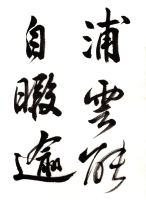 浦雲能
自暇逾